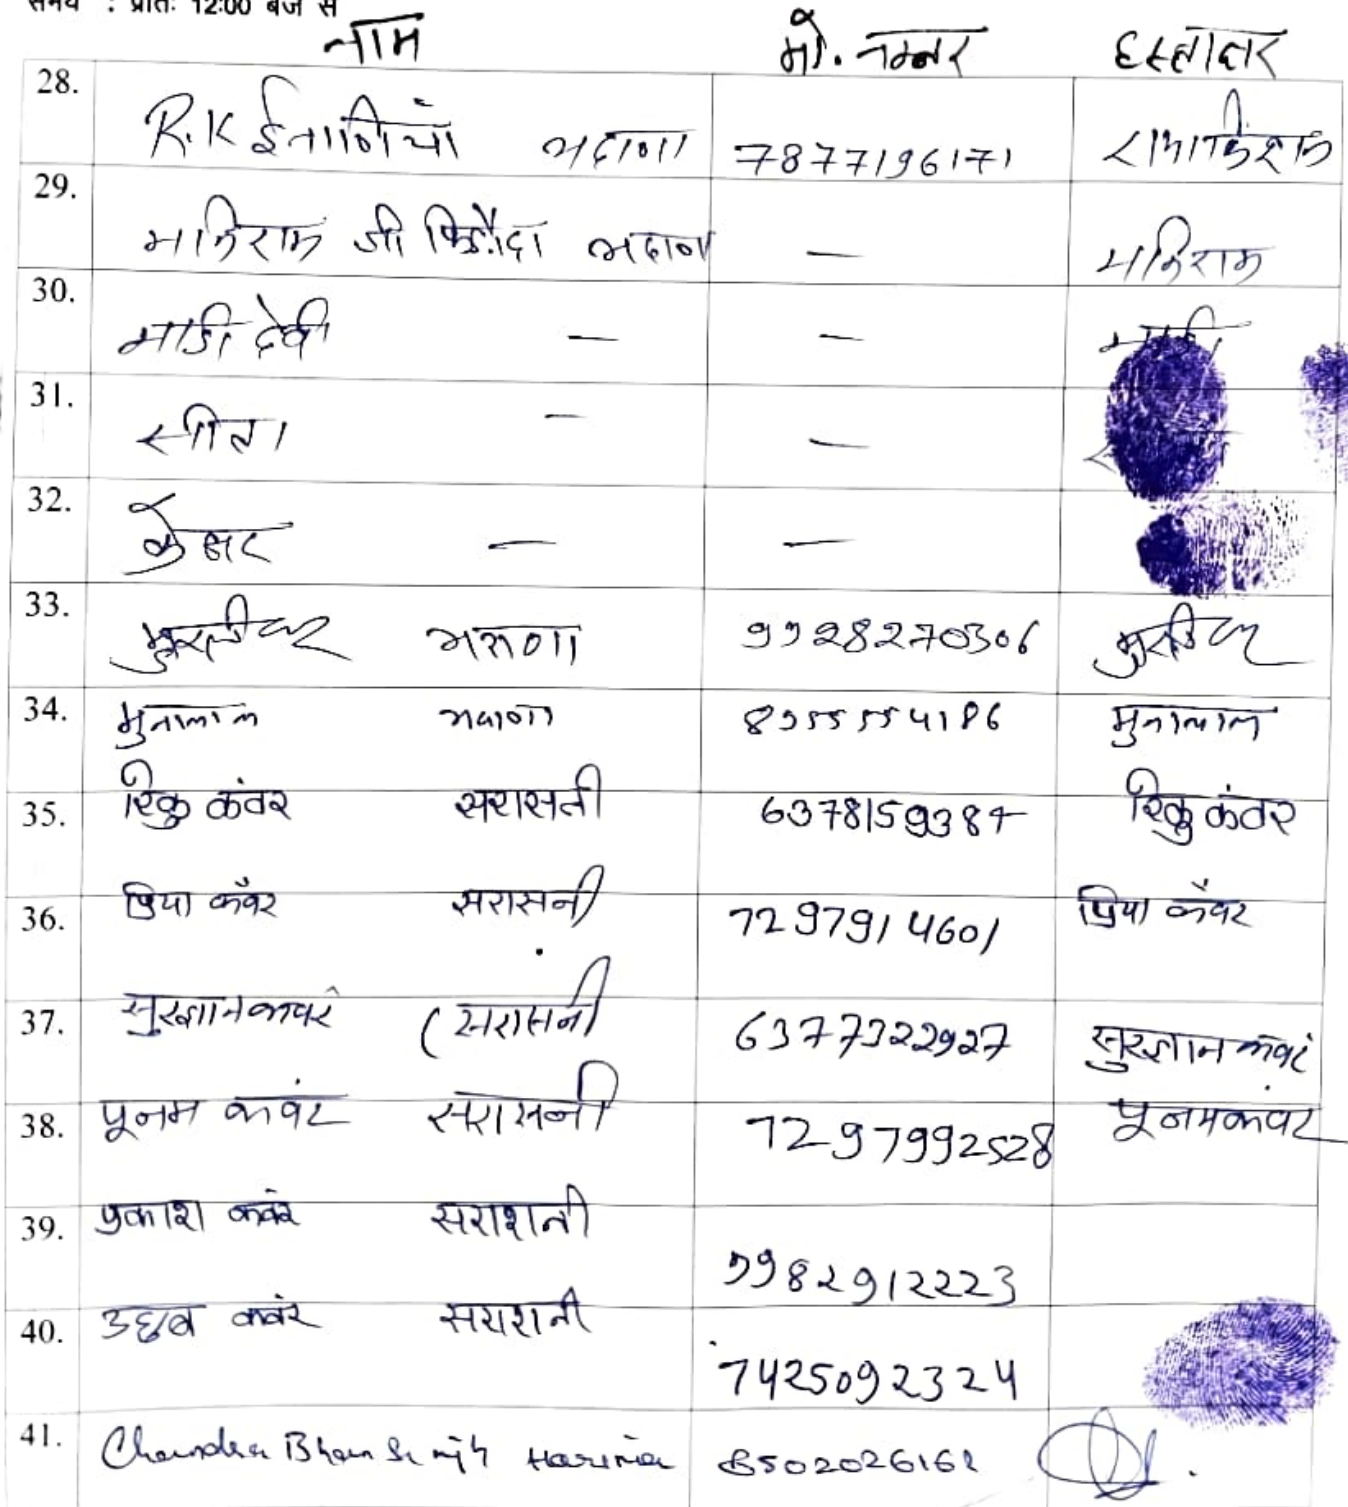 समय : प्रातः 12:00 बजे से
नाम मो. नम्बर हस्ताक्षर
28. R.K ईनाणियां भदाणा 7877196171 रामकिशन
29. मनिराम जी भदाणा — मनिराम
30. माडी देवी — —
31. सीता — —
32. केसर — —
33. मुरलीधर भदाणा 9928270306 मुरलीधर
34. मुनालाल भदाणा 8955554186 मुनालाल
35. रिंकु कंवर सरासनी 6378159384 रिंकु कंवर
36. प्रिया कँवर सरासनी 7297914601 प्रिया कँवर
37. सुरज्ञान कवरं (सरासनी 6377322927 सुरज्ञान कवरं
38. पूनम कवंर सरासनी 7297992528 पूनम कवंर
39. प्रकाश कवंर सराशनी 9982912223
40. उछब कवंर सराशनी 7425092324
41. Chandra Bhan Singh Harima 8502026162